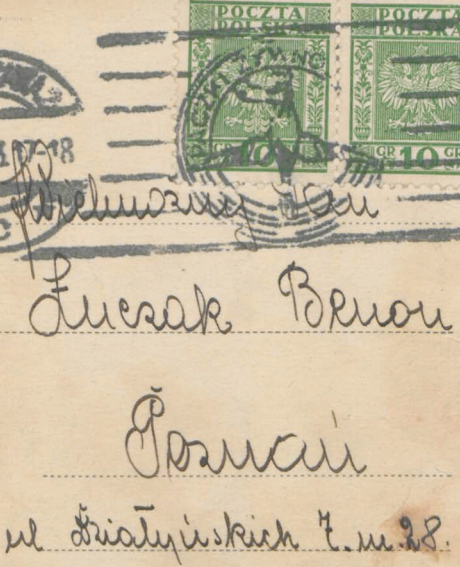 POCZTA POLSKA POCZTA POLSKA
GR 10 GR 10
17-18
Wielmożny Pan
Łuczak Benon
Poznań
ul Działyńskich 7. m. 28.